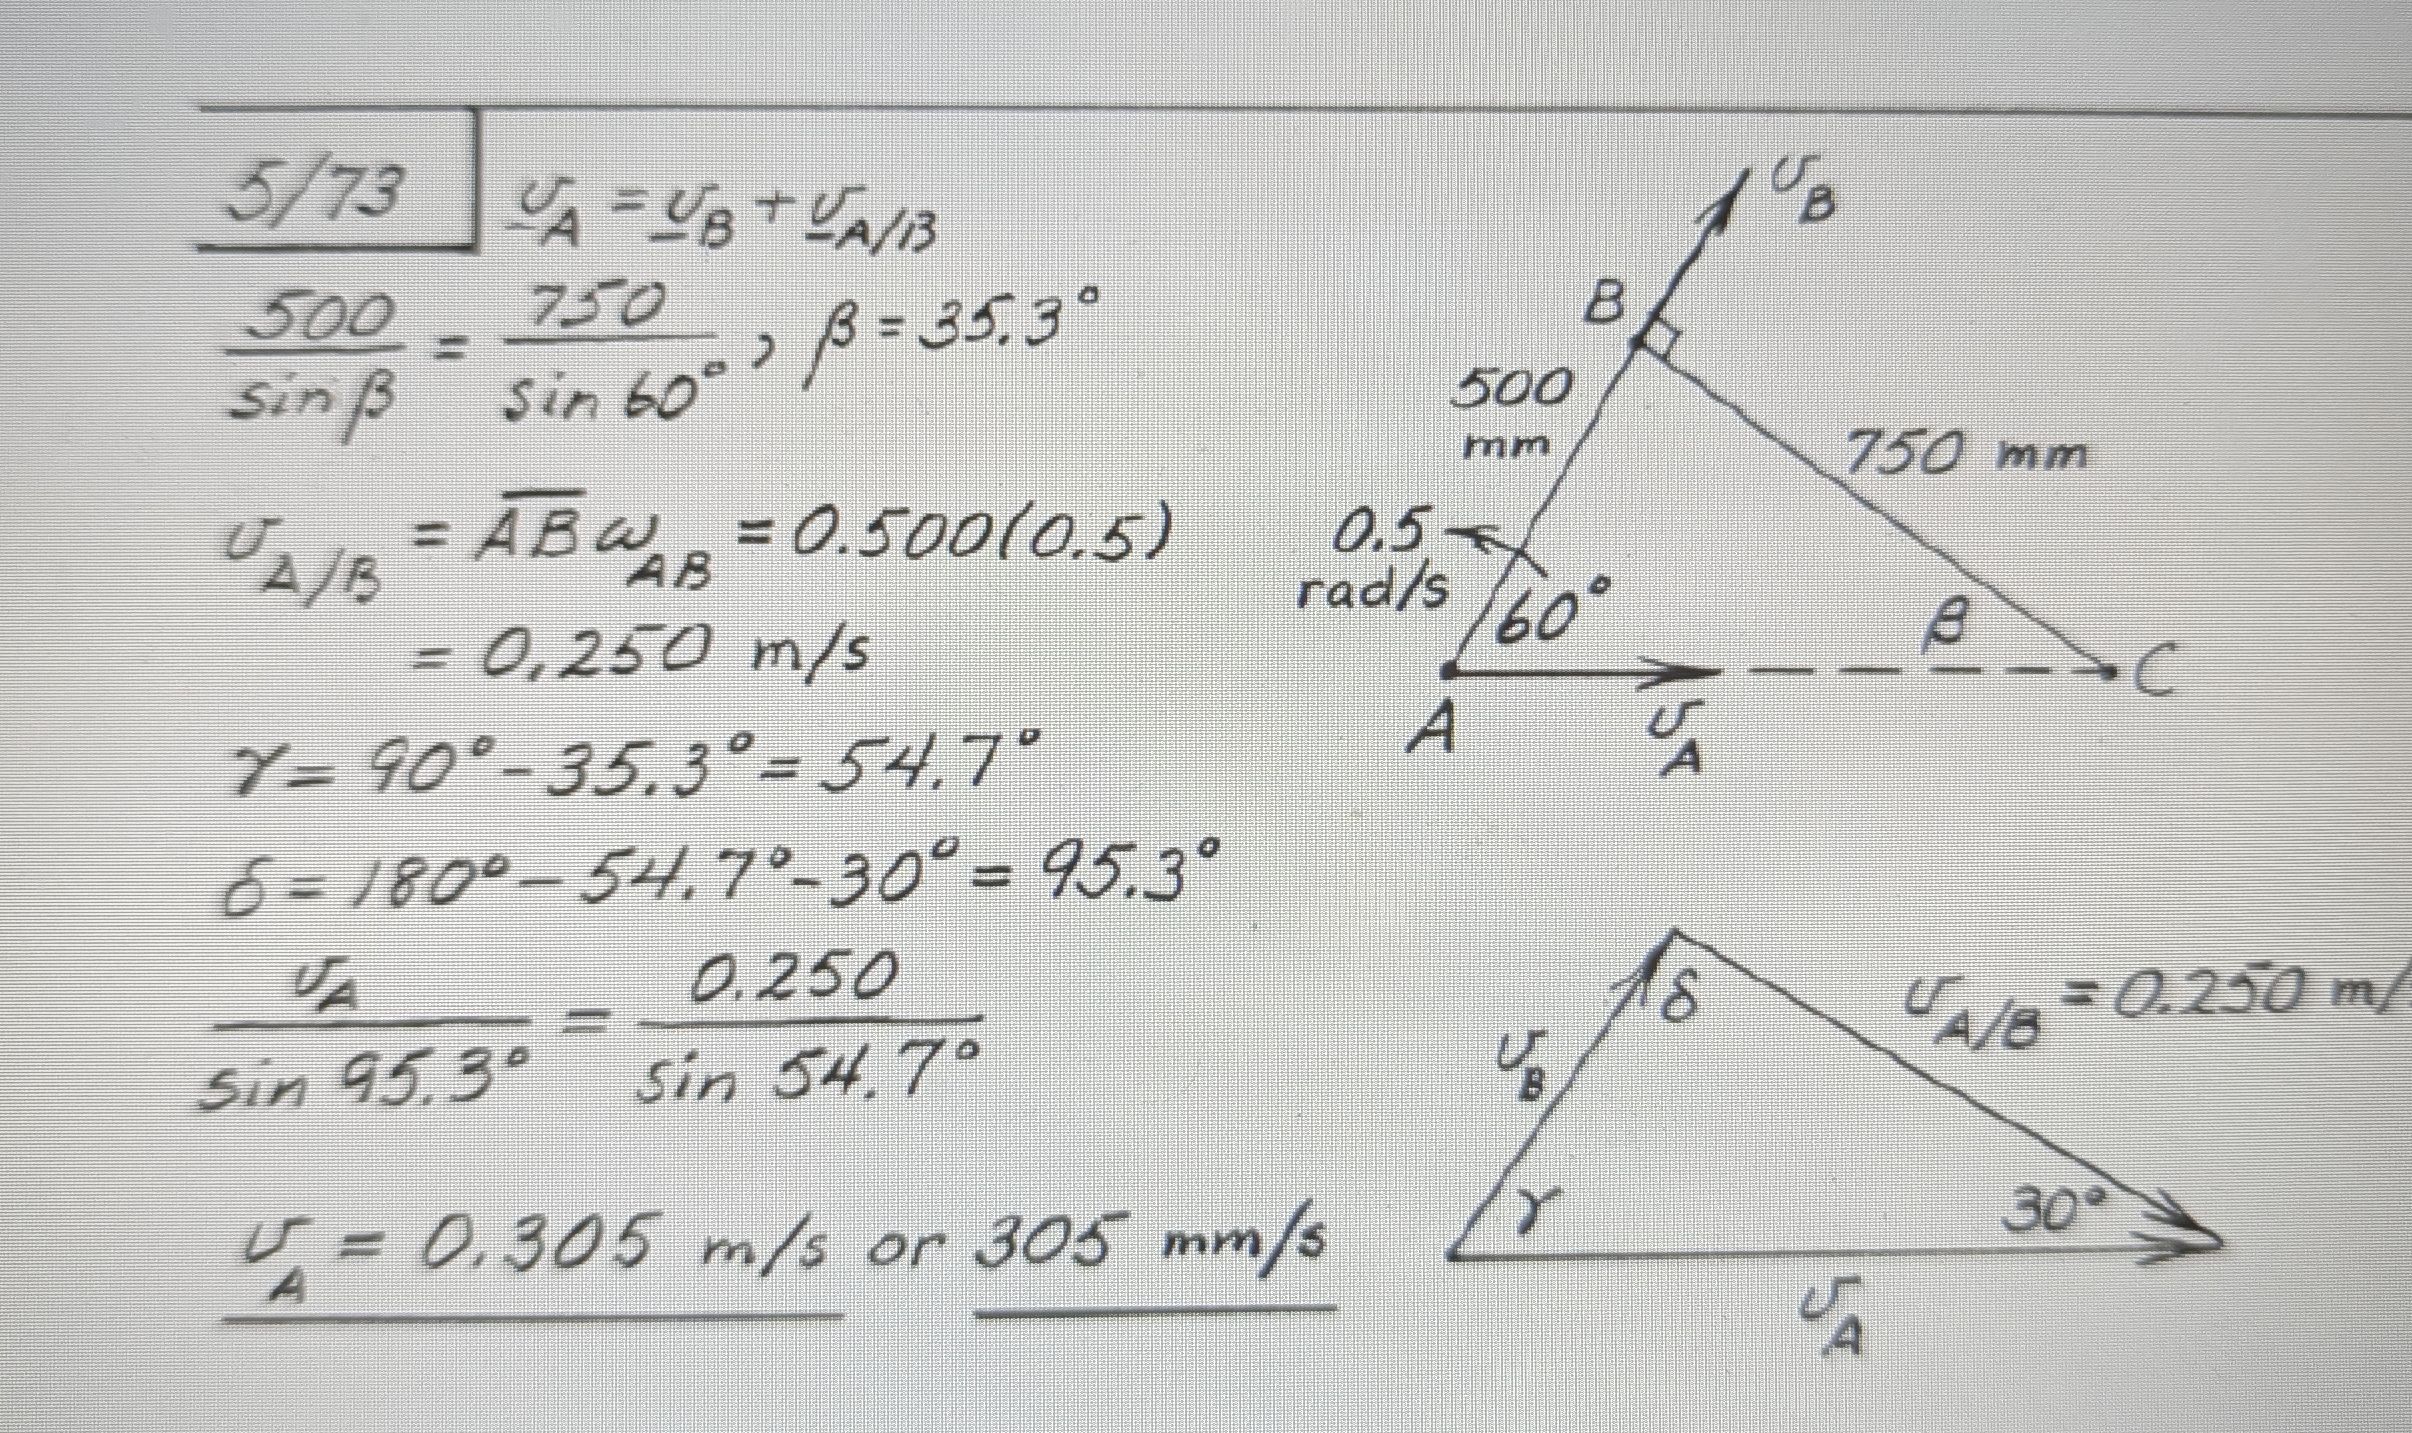 5/73
v_A = v_B + v_A/B
500/sin β = 750/sin 60°, β = 35.3°
v_A/B = AB ω_AB = 0.500(0.5)
= 0.250 m/s
γ = 90° - 35.3° = 54.7°
δ = 180° - 54.7° - 30° = 95.3°
v_A/sin 95.3° = 0.250/sin 54.7°
v_A = 0.305 m/s or 305 mm/s
v_B
B
500
mm
750 mm
0.5
rad/s
60°
β
C
A
v_A
δ
v_A/B = 0.250 m/
v_B
γ
30°
v_A